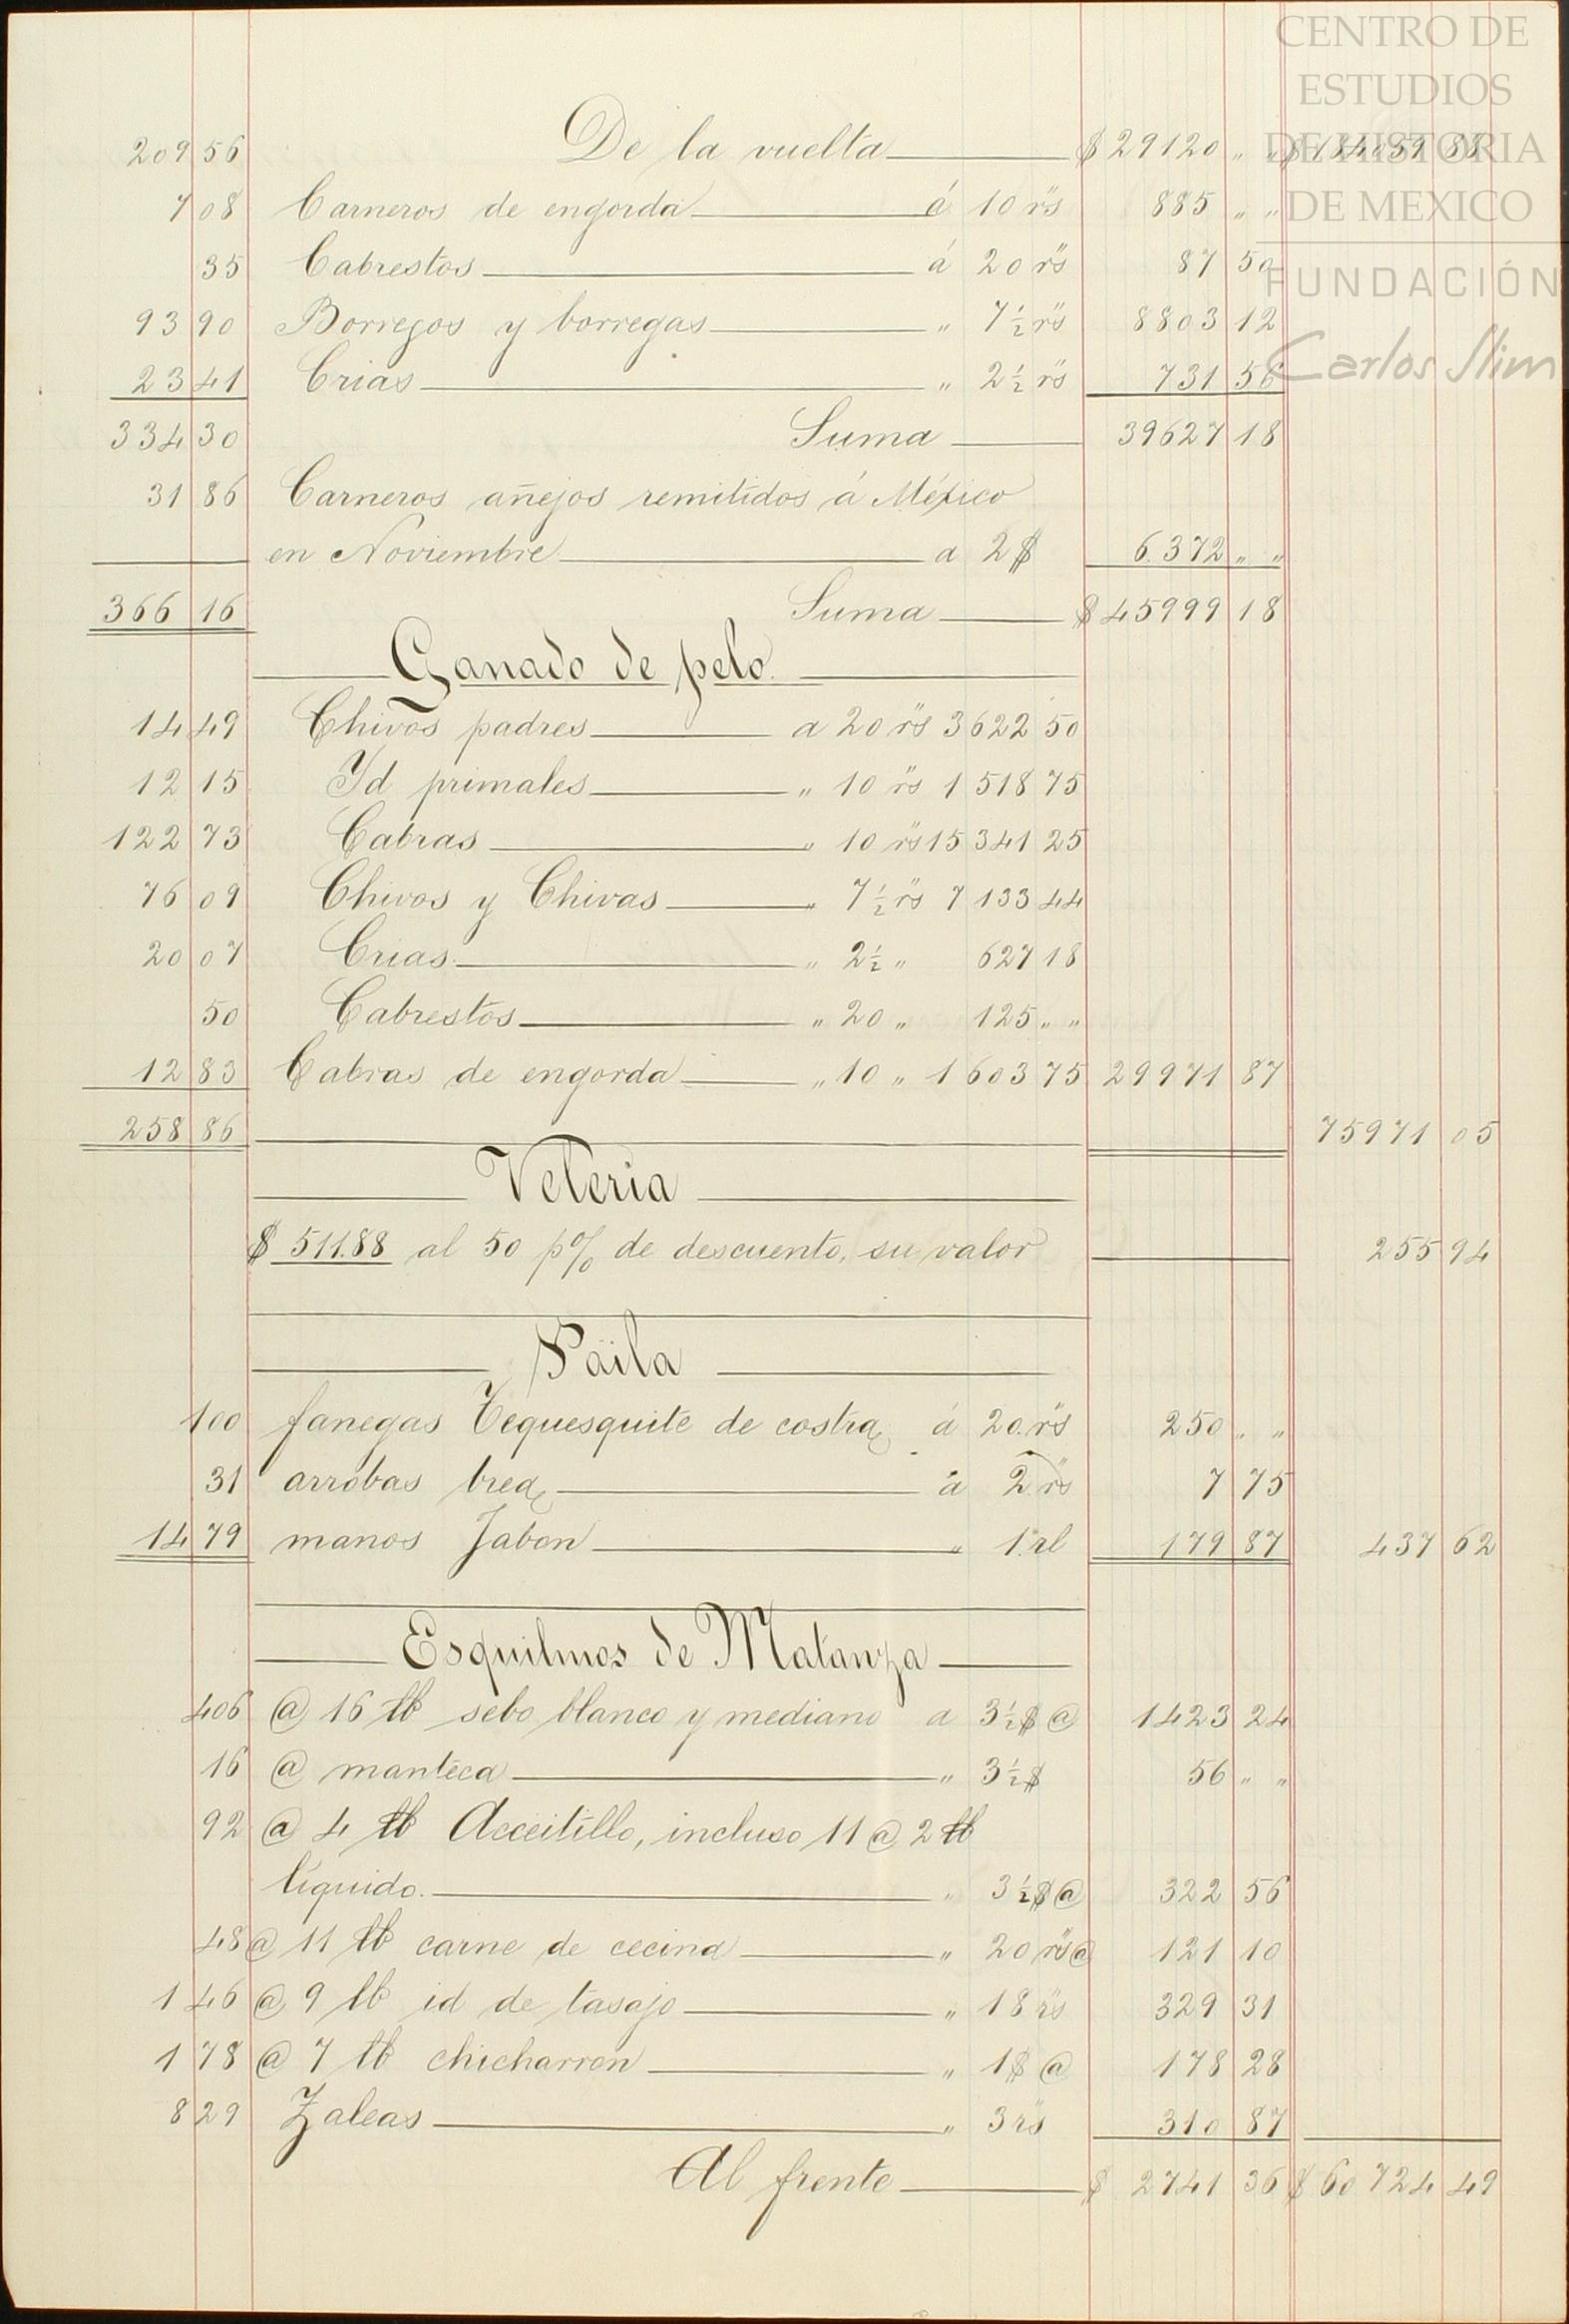 CENTRO DE
ESTUDIOS
DE HISTORIA
DE MEXICO
FUNDACIÓN
Carlos Slim
20956 De la vuelta $29120 „ „
708 Carneros de engorda á 10 rs 885 „ „
35 Cabrestos á 20 rs 87 50
9390 Borregos y borregas „ 7½ rs 8803 12
2341 Crias „ 2½ rs 731 56
33430 Suma 39627 18
3186 Carneros añejos remitidos á México
en Noviembre a 2$ 6.372 „ „
36616 Suma $45999 18
Ganado de pelo.
1449 Chivos padres a 20 rs 3622 50
1215 Yd primales „ 10 rs 1518 75
12273 Cabras „ 10 rs 15341 25
7609 Chivos y Chivas „ 7½ rs 7133 44
2007 Crias „ 2½ „ 627 18
50 Cabrestos „ 20 „ 125 „ „
1283 Cabras de engorda „ 10 „ 1603 75 29971 87
25886 75971 05
Veleria
$ 511.88 al 50 p% de descuento, su valor 255 94
Paila
100 fanegas Tequesquite de costra á 20. rs 250 „ „
31 arrobas brea á 2 rs 7 75
1479 manos Jabon „ 1. rl 179 87 437 62
Esquilmos de Matanza
406 @ 16 lb sebo blanco y mediano a 3½$ @ 1423 24
16 @ manteca „ 3½$ 56 „ „
92 @ 4 lb Acceitillo, incluso 11 @ 2 lb
líquido. „ 3½$ @ 322 56
48 @ 11 lb carne de cecina „ 20 rs @ 121 10
146 @ 9 lb id de tasajo „ 18 rs 329 31
178 @ 7 lb chicharron „ 1$ @ 178 28
829 Zaleas „ 3 rs 310 87
Al frente $ 2741 36 $ 60724 49